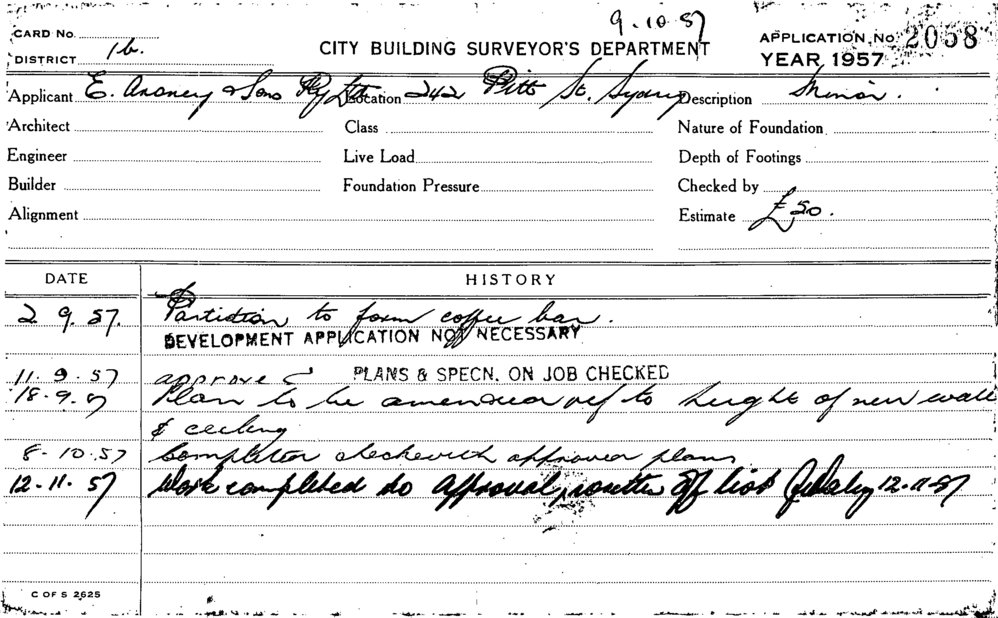 9.10.57
CARD No.
DISTRICT 1b.
CITY BUILDING SURVEYOR'S DEPARTMENT
APPLICATION No. 2058
YEAR 1957
Applicant E. & Sons Pty Ltd Location 242 Pitt St. Sydney Description Minor.
Architect Class Nature of Foundation
Engineer Live Load Depth of Footings
Builder Foundation Pressure Checked by
Alignment Estimate £50.
DATE HISTORY
2.9.57. Partition to form coffee bar.
DEVELOPMENT APPLICATION NOT NECESSARY
11.9.57 approved PLANS & SPECN. ON JOB CHECKED
18.9.57 Plan to be amended ref to height of new wall
& ceiling
8.10.57 Completed approved plans
12.11.57 Work completed to approval, off list 12.11.57
C OF S 2625